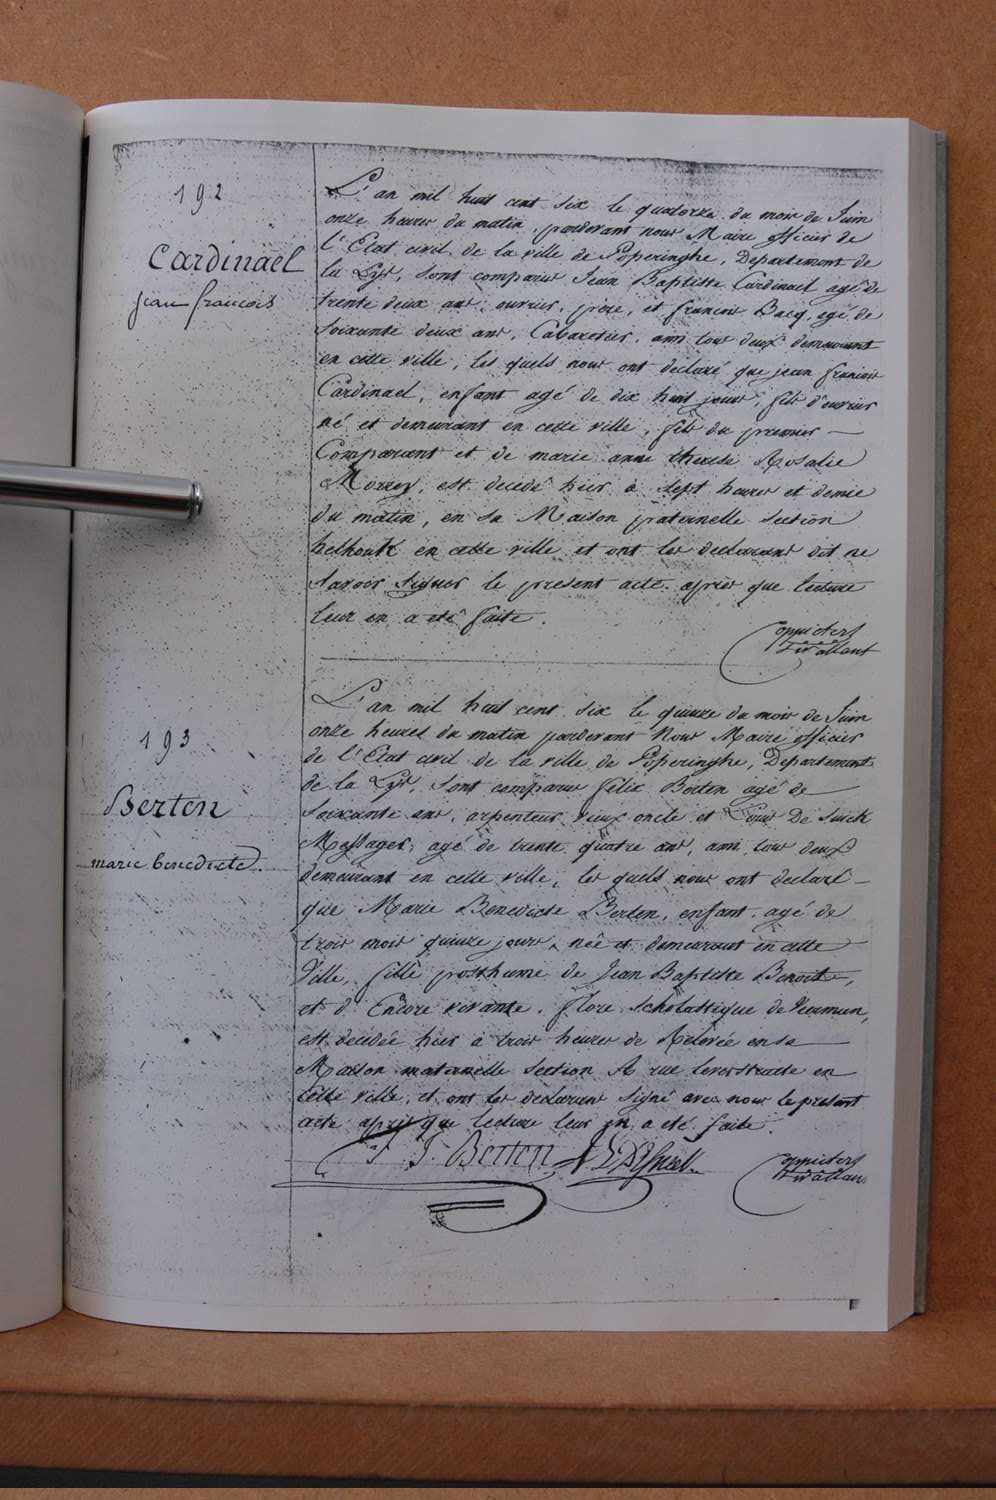 192
Cardinael
jean francois
L'an mil huit cent six le quatorze du mois de Juin
onze heures du matin, pardevant nous Maire officier de
l'Etat civil de la ville de Poperinghe, Departement de
la Lys, sont comparus Jean Baptiste Cardinael agé de
trente deux ans, ouvrier, pere, et francois Bacq, agé de
soixante deux ans, Cabaretier, ami tous deux demeurant
en cette ville, les quels nous ont declaré que jean francois
Cardinael, enfant agé de dix huit jours, fils d'ouvrier
né et demeurant en cette ville, fils du premier —
Comparant et de marie anne therese Rosalie
Morrey, est decedé hier à sept heures et demie
du matin, en sa Maison paternelle section
helhoutk en cette ville et ont les declarans dit ne
savoir signer le present acte après que lecture
leur en a eté faite.
193
Berten
marie benedicte.
L'an mil huit cent six le quinze du mois de Juin
onze heures du matin pardevant Nous Maire officier
de l'Etat civil de la ville de Poperinghe, Departement
de la Lys, sont comparus félix Berten agé de
soixante ans, arpenteur, vieux oncle et Louis De
Messager, agé de trente quatre ans, ami, tous deux
demeurant en cette ville, les quels nous ont declaré —
que Marie Benedicte Berten, enfant agé de
trois mois quinze jours, née et demeurant en cette
Ville, fille posthume de Jean Baptiste Benoit,
et d'Encore vivante, flore scholastique de
est decedée hier à trois heures de Relevée en sa
Maison maternelle section A rue en
cette ville, et ont les declarans signé avec nous le présent
acte après que lecture leur en a eté faite.
F J Berten